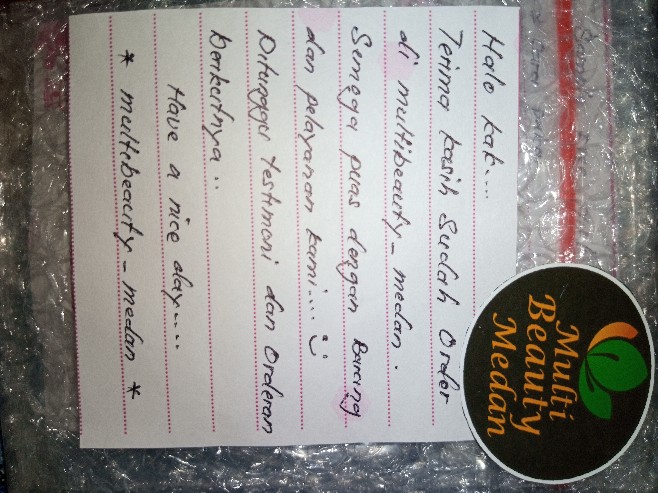 Halo kak....
Terima kasih sudah order
di multibeauty_medan.
Semoga puas dengan Barang
dan pelayanan kami.... :)
Ditunggu testimoni dan orderan
berikutnya..
Have a nice day....
* multibeauty_medan *
Multi
Beauty
Medan